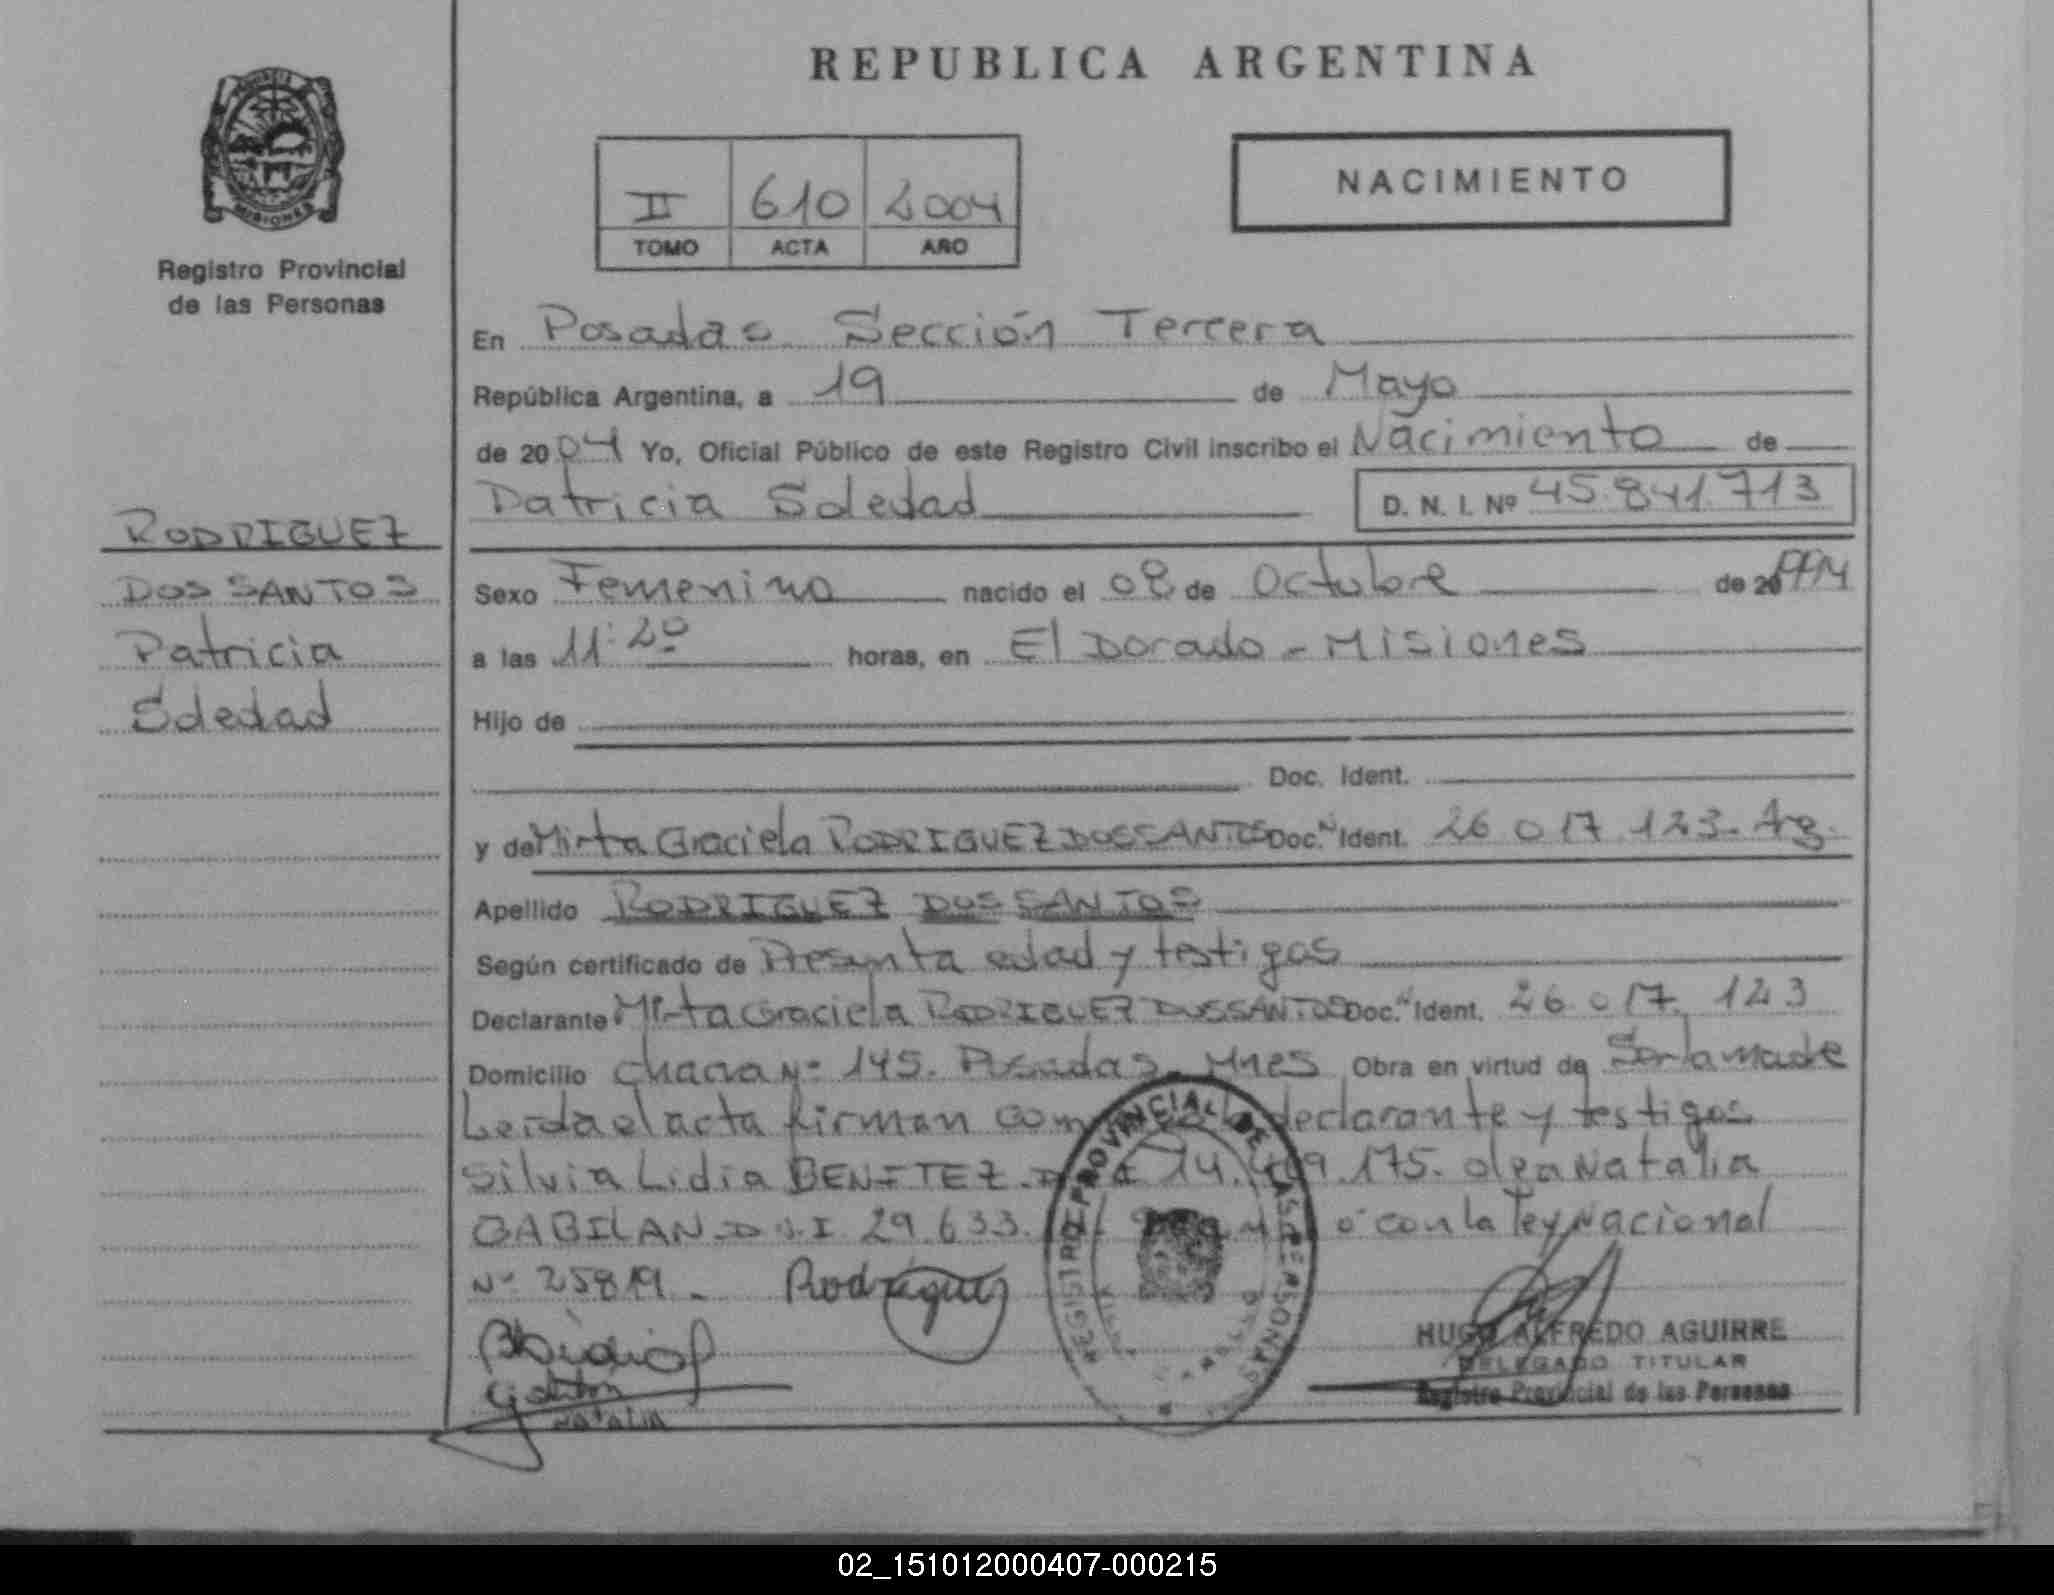 REPUBLICA ARGENTINA
MISIONES
Registro Provincial
de las Personas
II 610 2004
TOMO ACTA AÑO
NACIMIENTO
En Posadas Sección Tercera
República Argentina, a 19 de Mayo
de 2004 Yo, Oficial Público de este Registro Civil inscribo el Nacimiento de
Patricia Soledad D. N. I. Nº 45.841.713
RODRIGUEZ
DOS SANTOS
Patricia
Soledad
Sexo Femenino nacido el 08 de Octubre de 20
a las 11:20 horas, en El Dorado - Misiones
Hijo de
Doc. Ident.
y de Mirta Graciela RODRIGUEZ DOS SANTOS Doc. Ident. 26 017 123.
Apellido RODRIGUEZ DOS SANTOS
Según certificado de Presunta edad y testigos
Declarante Mirta Graciela RODRIGUEZ DOS SANTOS Doc. Ident. 26 017. 123
Domicilio chacra Nº 145. Posadas. Mnes Obra en virtud de Ser la madre
Leida el acta firman declarante y testigos
Silvia Lidia BENITEZ. 14. 175. Olga Natalia
GABILAN D.N.I 29.633. con la ley Nacional
Nº 25819.-
Rodriguez
NATALIA
REGISTRO PROVINCIAL DE LAS PERSONAS
HUGO ALFREDO AGUIRRE
DELEGADO TITULAR
Registro Provincial de las Personas
02_151012000407-000215